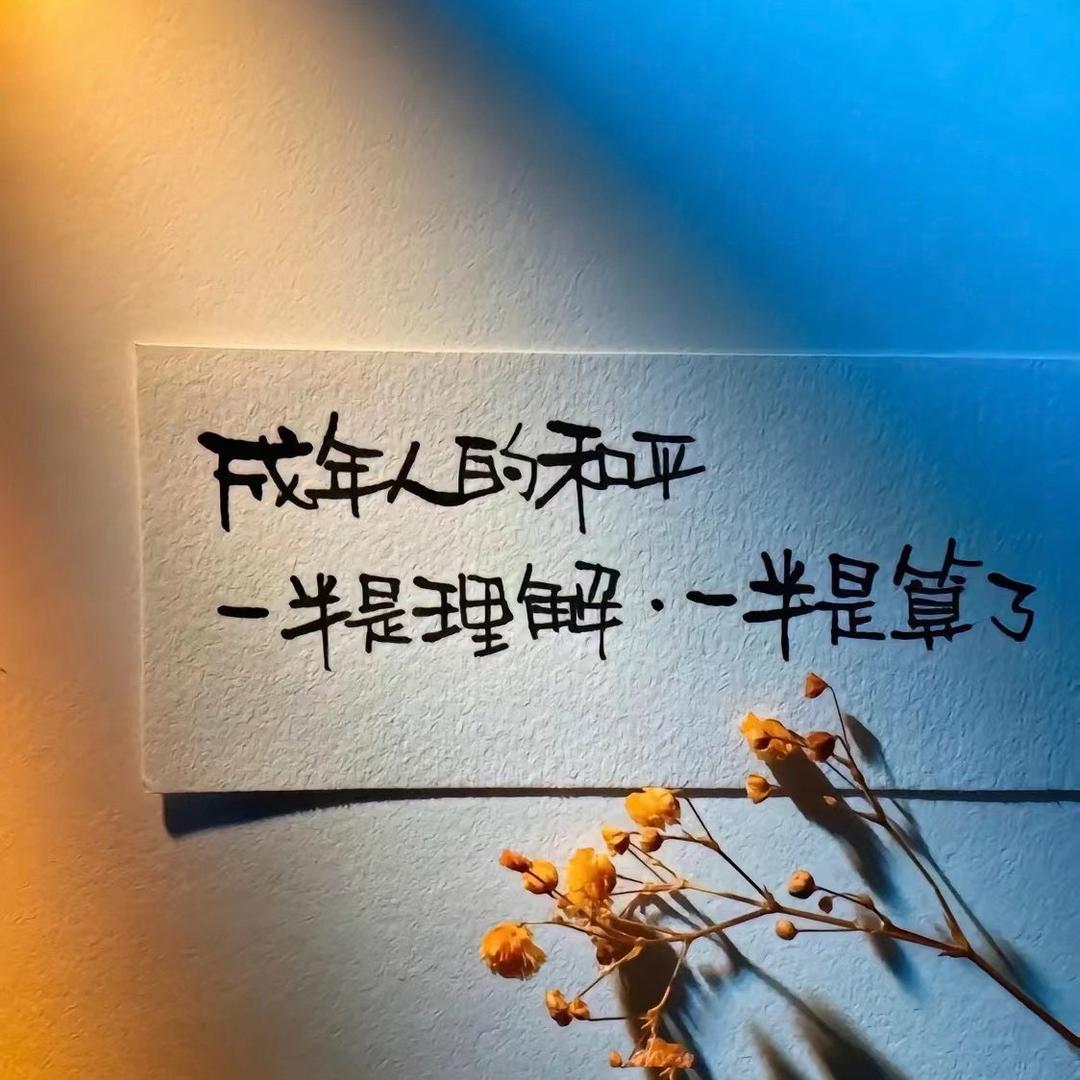 成年人的和平
一半是理解·一半是算了